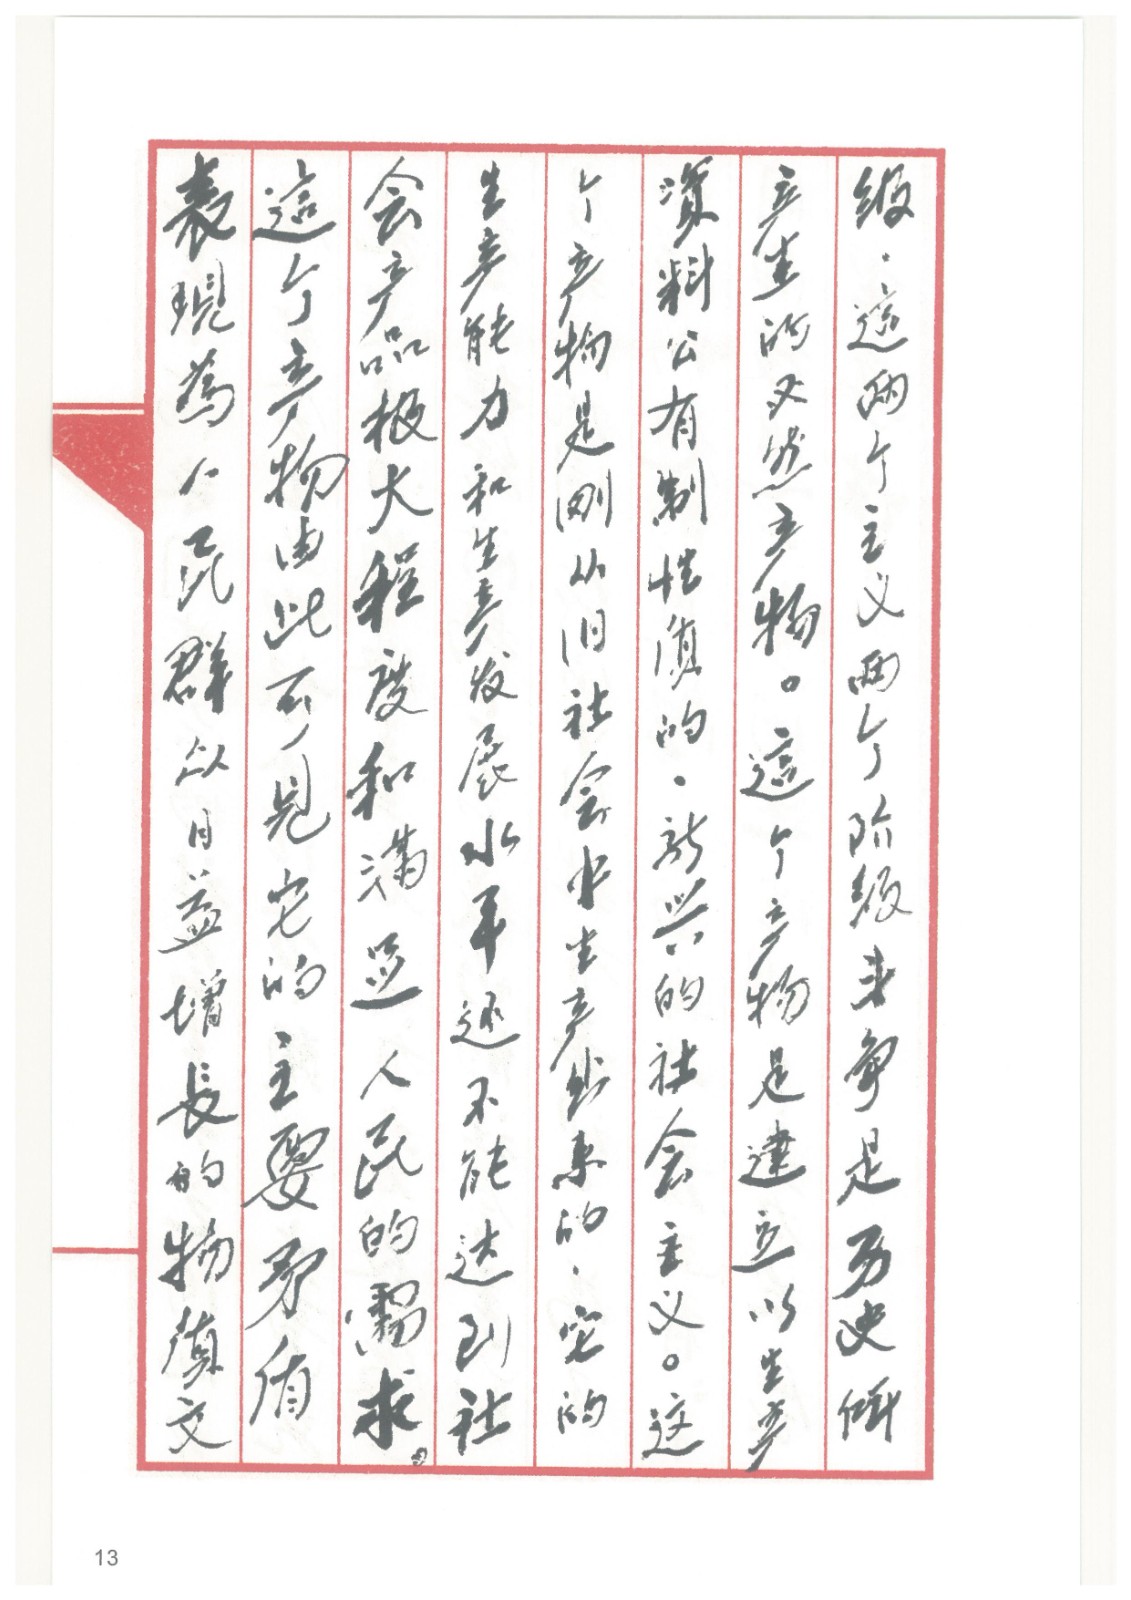 级．這两个主义两个阶级斗争是历史
产生的必然产物。這个产物是建立以生产
资料公有制性质的．新兴的社会主义。这
个产物是刚从旧社会中生产出来的．它的
生产能力和生产发展水平还不能达到社
会产品极大程度和满足人民的需求。
這个产物由此可見它的主要矛盾
表現為人民群众日益增長的物質文
13